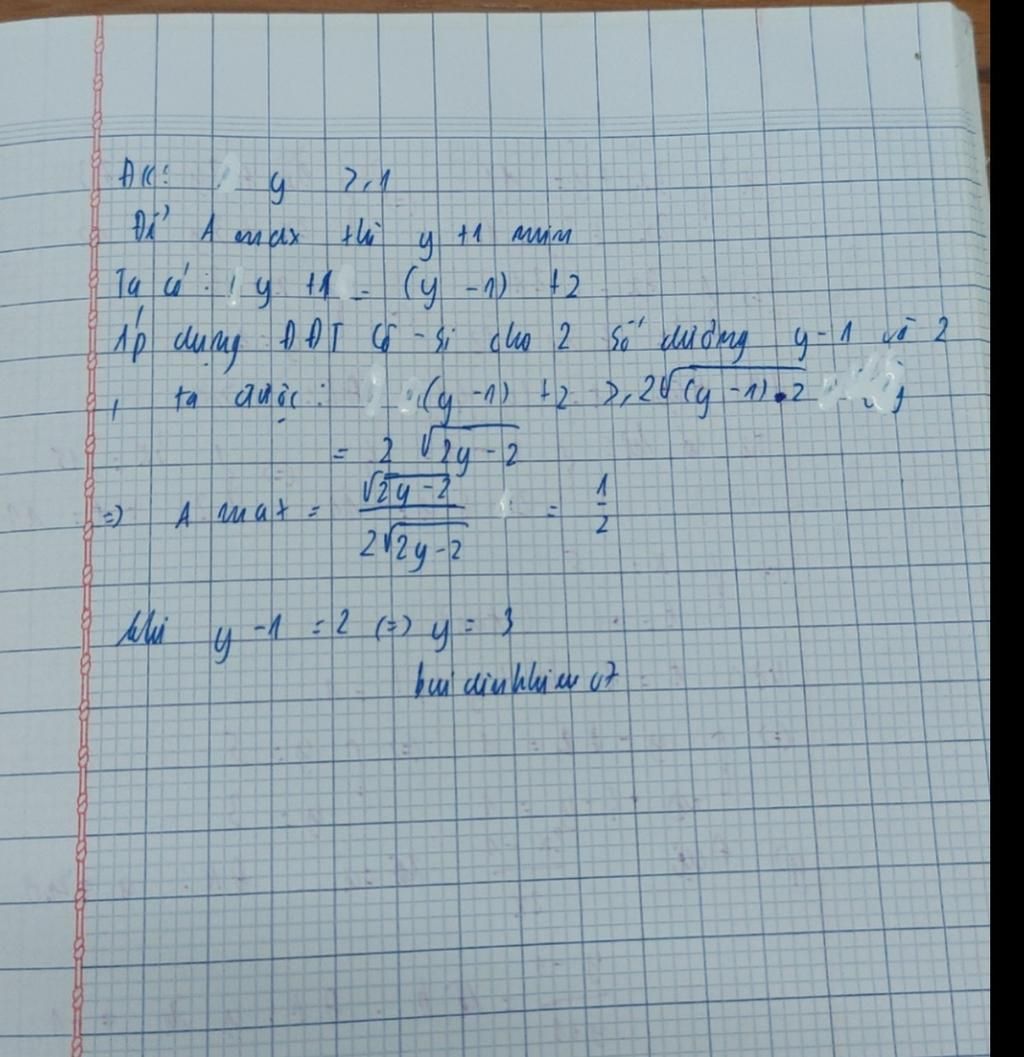 ĐK: y ⩾ 1
Để A max thì y + 1 min
Ta có: y + 1 = (y - 1) + 2
Áp dụng BĐT Cô - si cho 2 số dương y - 1 và 2
, ta được: (y - 1) + 2 ⩾ 2√((y - 1).2)
= 2 √(2y - 2)
=> A max = √(2y - 2) / (2√(2y - 2)) = 1/2
khi y - 1 = 2 (=) y = 3